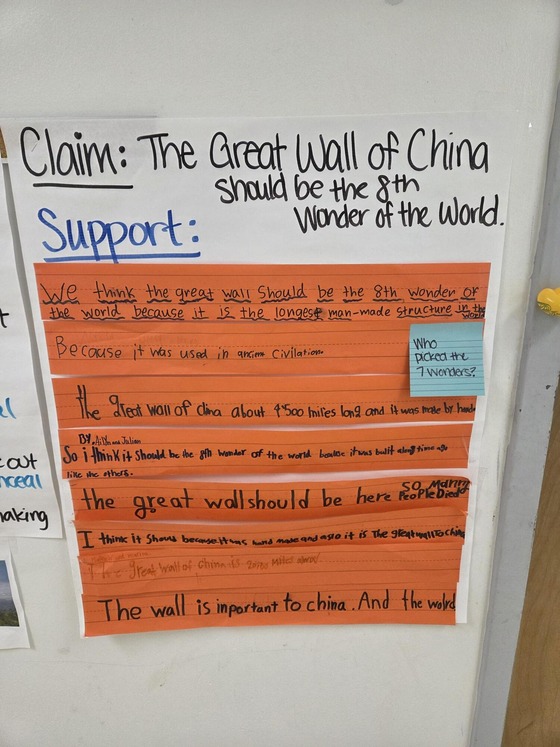 Claim: The Great Wall of China
should be the 8th
Wonder of the World.
Support:
We think the great wall should be the 8th wonder of
the world because it is the longest man-made structure in the
world
Because it was used in civilation
Who
picked the
7 Wonders?
The great wall of china about 4500 miles long and it was made by hand
By
So i think it should be the 8th wonder of the world because it was built along time ago
like the others.
the great wall should be here so many
People Died
I think it should because it was hand made and also it is The great wall to china
The great wall of china is miles
The wall is inportant to china. And the wolrd
t
out
nceal
making